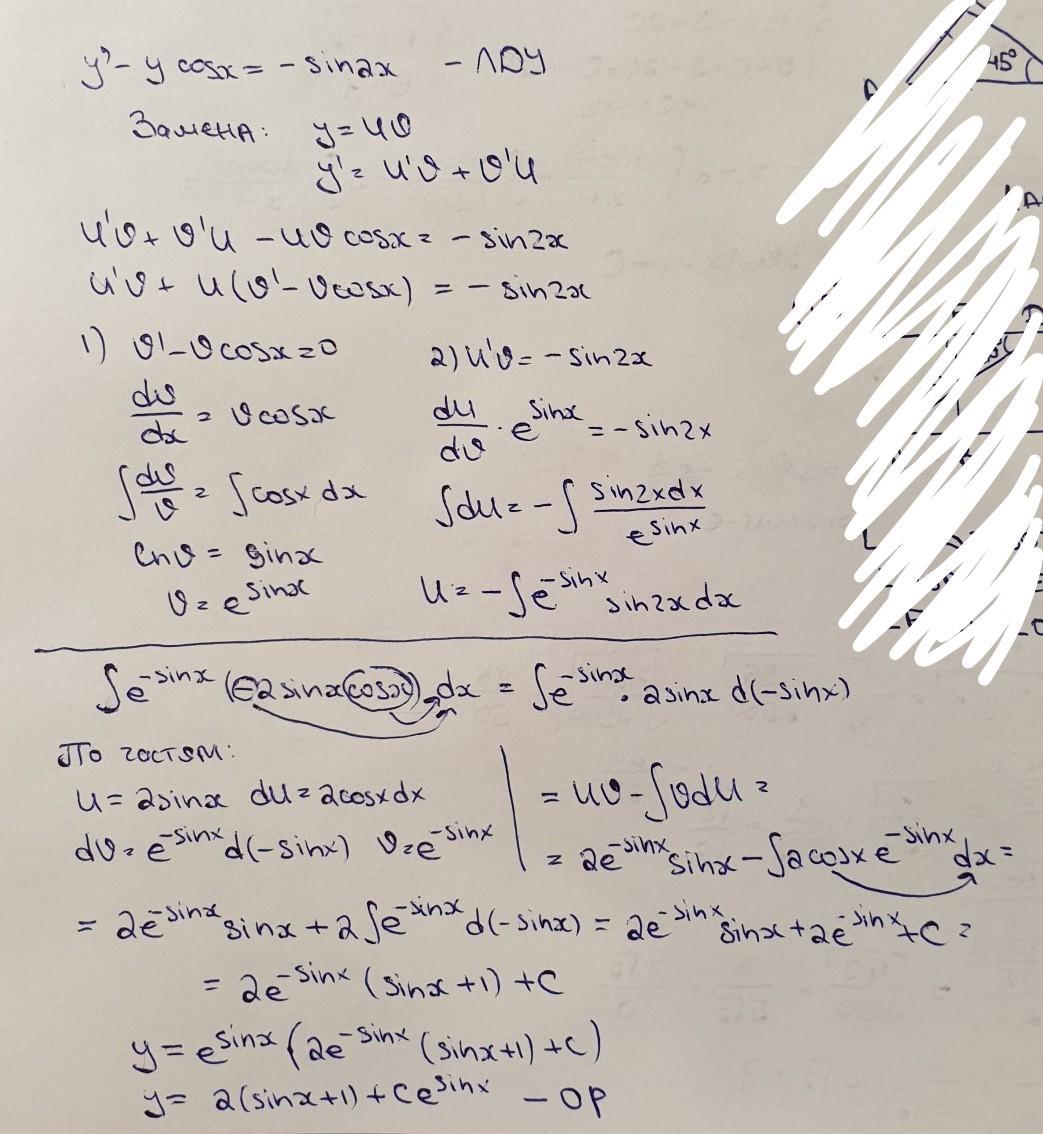 y' - y cosx = - sin2x - ЛДУ
Замена: y = uv
y' = u'v + v'u
u'v + v'u - uv cosx = - sin2x
u'v + u(v' - vcosx) = - sin2x
1) v' - v cosx = 0
dv/dx = v cosx
∫ dv/v = ∫ cosx dx
ln v = sinx
v = e^sinx
2) u'v = - sin2x
du/dv · e^sinx = - sin2x
∫ du = - ∫ sin2xdx / e^sinx
u = - ∫ e^-sinx sin2x dx
∫ e^-sinx (-2 sinx cosx) dx = ∫ e^-sinx · 2sinx d(-sinx)
По частям:
u = 2sinx du = 2cosxdx
dv = e^-sinx d(-sinx) v = e^-sinx
= uv - ∫ vdu =
= 2e^-sinx sinx - ∫ 2cosx e^-sinx dx =
= 2e^-sinx sinx + 2 ∫ e^-sinx d(-sinx) = 2e^-sinx sinx + 2e^-sinx + C =
= 2e^-sinx (sinx + 1) + C
y = e^sinx (2e^-sinx (sinx+1) + C)
y = 2(sinx+1) + Ce^sinx - ОР
45°